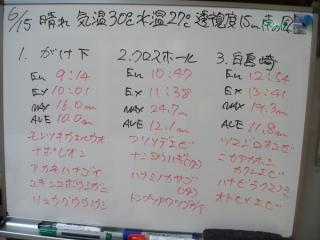 6/15 晴れ 気温30℃ 水温27℃ 透視度15m 南の風
1. がけ下
En 9:14
Ex 10:01
MAX 16.0m
AVE 10.0m
モンツキカエルウオ
ナポレオン
アカネハナゴイ
ユキンコボウシガニ
リュウグウウミウシ
2. クロスホール
En 10:47
Ex 11:38
MAX 24.7m
AVE 12.1m
フリソデエビ
ハナミノカサゴ
3.
En 12:54
Ex 13:41
MAX 14.3m
AVE 11.8m
ニカタカクレエビ
ハナビラクマノミ
オトヒメエビ